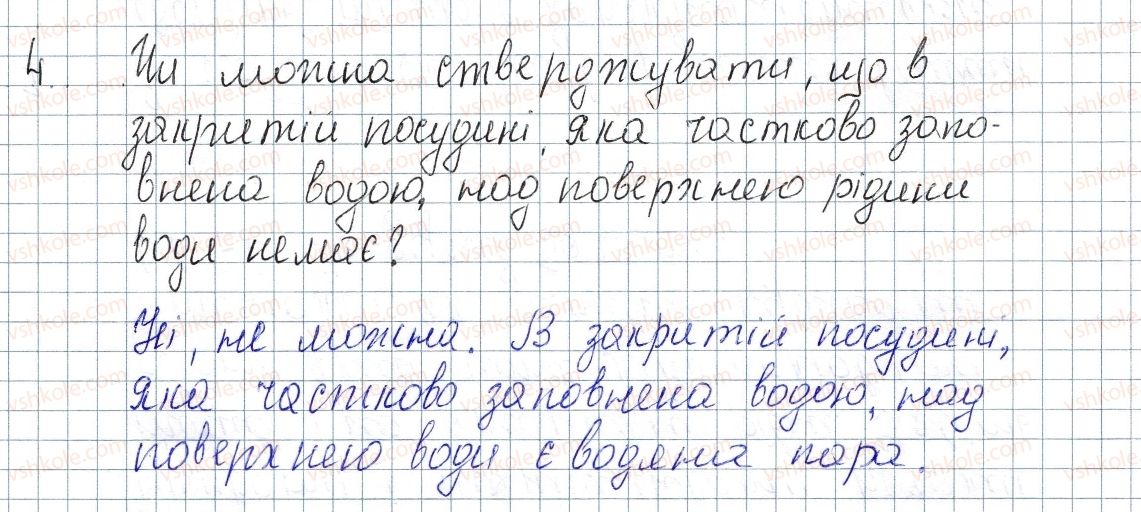 4. Чи можна стверджувати, що в
закритій посудині, яка частково запо-
внена водою, над поверхнею рідини
води немає?
Ні, не можна. В закритій посудині,
яка частково заповнена водою, над
поверхнею води є водяна пара.